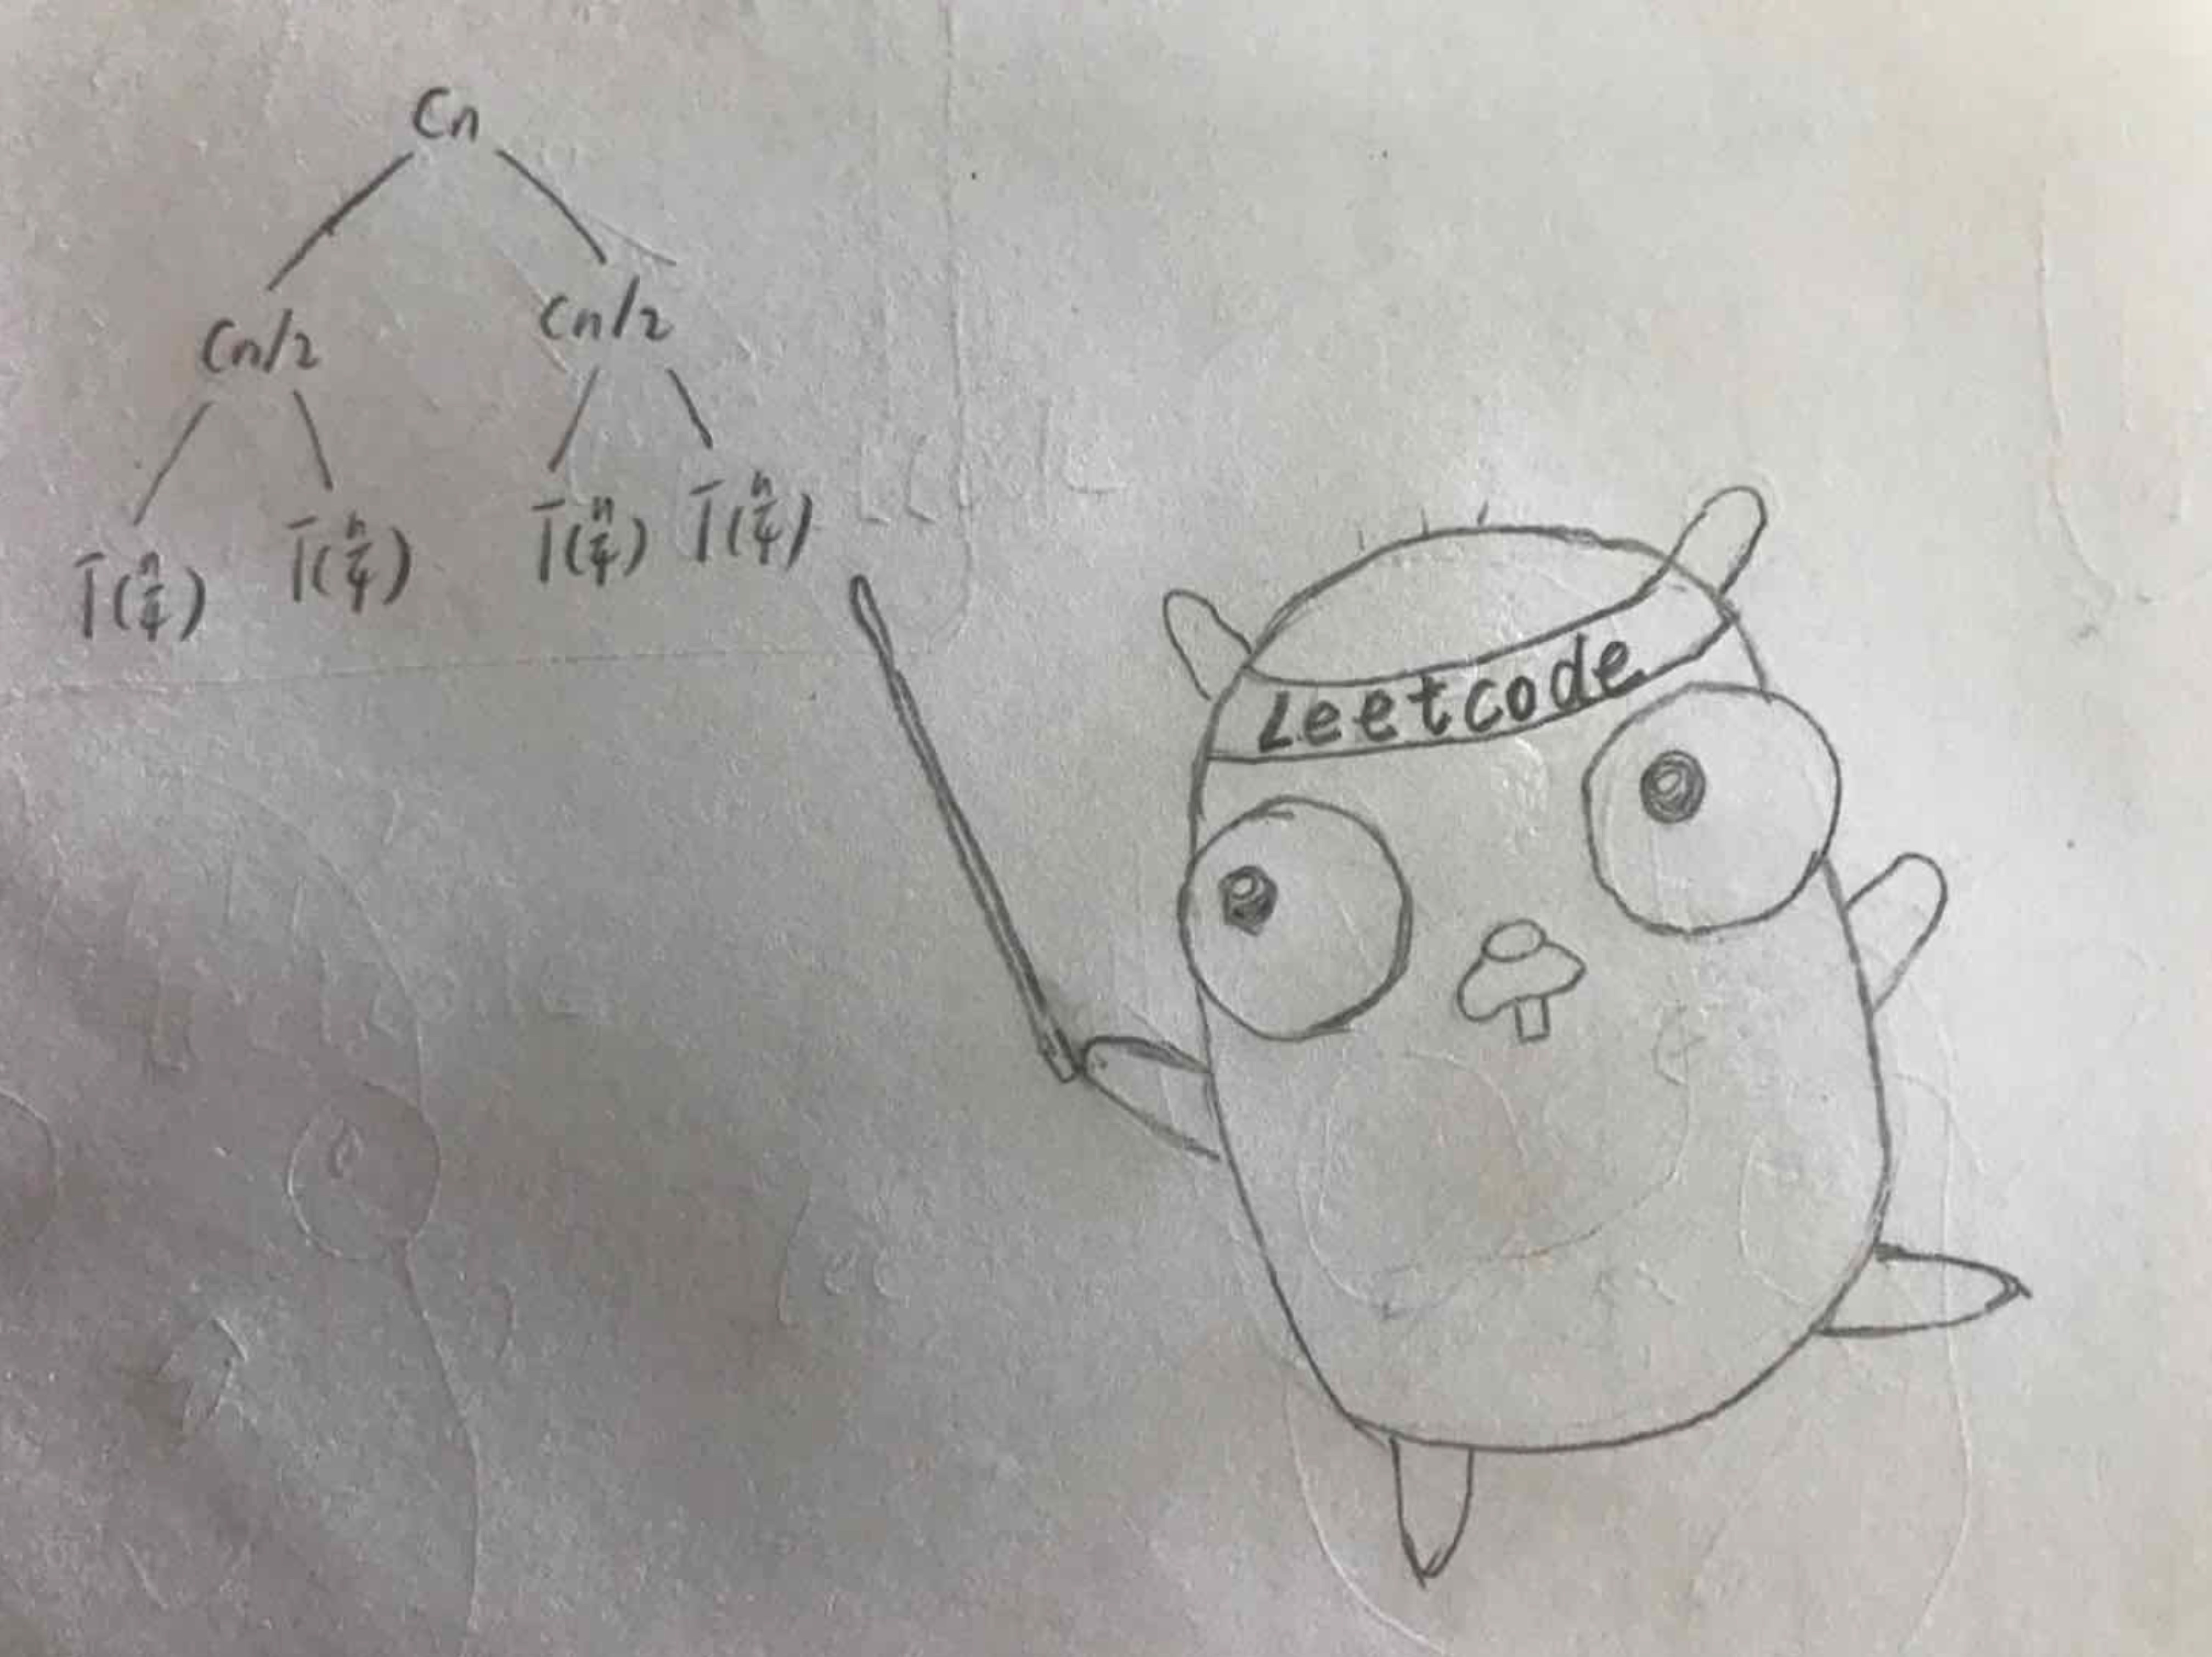 Cn
Cn/2 Cn/2
T(n/4) T(n/4) T(n/4) T(n/4)
Leetcode